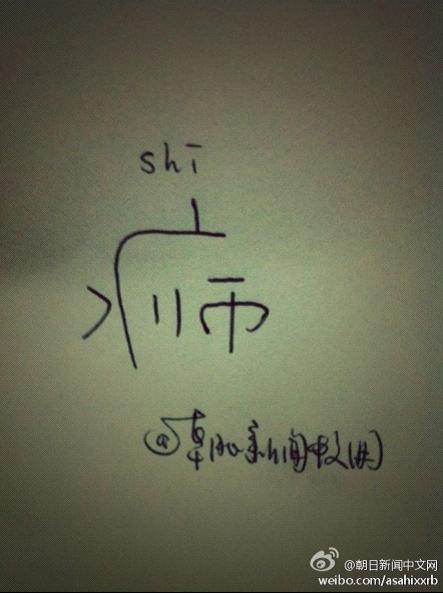 shī
@朝日新闻中文网
@朝日新闻中文网
weibo.com/asahixxrb